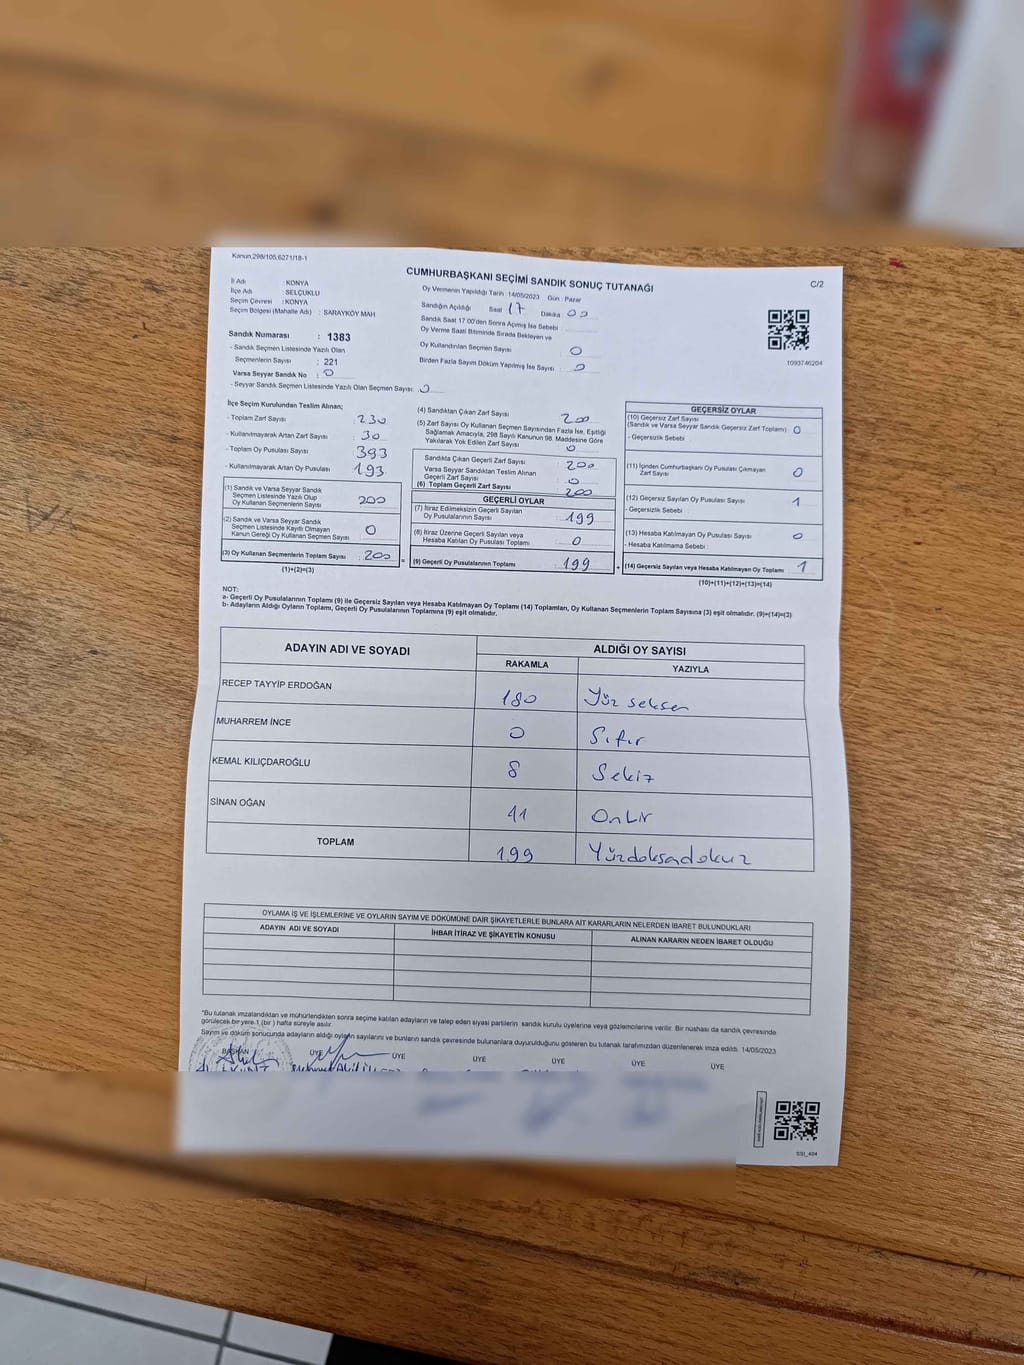 Kanun,298/105,6271/18-1
CUMHURBAŞKANI SEÇİMİ SANDIK SONUÇ TUTANAĞI
C/2
İl Adı : KONYA
İlçe Adı : SELÇUKLU
Seçim Çevresi : KONYA
Seçim Bölgesi (Mahalle Adı) : SARAYKÖY MAH
Oy Vermenin Yapıldığı Tarih :14/05/2023 Gün : Pazar
Sandığın Açıldığı Saat 17 Dakika 00
Sandık Saat 17:00'den Sonra Açımış İse Sebebi
Oy Verme Saati Bitiminde Sırada Bekleyen ve
Oy Kullandırılan Seçmen Sayısı : 0
Birden Fazla Sayım Döküm Yapılmış İse Sayısı : 0
1093746204
Sandık Numarası : 1383
- Sandık Seçmen Listesinde Yazılı Olan
Seçmenlerin Sayısı : 221
Varsa Seyyar Sandık No : 0
- Seyyar Sandık Seçmen Listesinde Yazılı Olan Seçmen Sayısı: 0
İlçe Seçim Kurulundan Teslim Alınan;
- Toplam Zarf Sayısı : 230
- Kullanılmayarak Artan Zarf Sayısı : 30
- Toplam Oy Pusulası Sayısı : 393
- Kullanılmayarak Artan Oy Pusulası : 193
(1) Sandık ve Varsa Seyyar Sandık
Seçmen Listesinde Yazılı Olup
Oy Kullanan Seçmenlerin Sayısı : 200
(2) Sandık ve Varsa Seyyar Sandık
Seçmen Listesinde Kayıtlı Olmayan
Kanun Gereği Oy Kullanan Seçmen Sayısı : 0
(3) Oy Kullanan Seçmenlerin Toplam Sayısı : 200
(1)+(2)=(3)
(4) Sandıktan Çıkan Zarf Sayısı : 200
(5) Zarf Sayısı Oy Kullanan Seçmen Sayısından Fazla İse, Eşitliği
Sağlamak Amacıyla, 298 Sayılı Kanunun 98. Maddesine Göre
Yakılarak Yok Edilen Zarf Sayısı : 0
Sandıkta Çıkan Geçerli Zarf Sayısı : 200
Varsa Seyyar Sandıktan Teslim Alınan
Geçerli Zarf Sayısı : 0
(6) Toplam Geçerli Zarf Sayısı : 200
GEÇERLİ OYLAR
(7) İtiraz Edilmeksizin Geçerli Sayılan
Oy Pusulalarının Sayısı : 199
(8) İtiraz Üzerine Geçerli Sayılan veya
Hesaba Katılan Oy Pusulası Toplamı : 0
= (9) Geçerli Oy Pusulalarının Toplamı : 199
GEÇERSİZ OYLAR
(10) Geçersiz Zarf Sayısı
(Sandık ve Varsa Seyyar Sandık Geçersiz Zarf Toplamı) : 0
- Geçersizlik Sebebi :
(11) İçinden Cumhurbaşkanı Oy Pusulası Çıkmayan
Zarf Sayısı : 0
(12) Geçersiz Sayılan Oy Pusulası Sayısı : 1
- Geçersizlik Sebebi :
(13) Hesaba Katılmayan Oy Pusulası Sayısı : 0
- Hesaba Katılmama Sebebi :
+ (14) Geçersiz Sayılan veya Hesaba Katılmayan Oy Toplamı : 1
(10)+(11)+(12)+(13)=(14)
NOT:
a- Geçerli Oy Pusulalarının Toplamı (9) ile Geçersiz Sayılan veya Hesaba Katılmayan Oy Toplamı (14) Toplamları, Oy Kullanan Seçmenlerin Toplam Sayısına (3) eşit olmalıdır. (9)+(14)=(3)
b- Adayların Aldığı Oyların Toplamı, Geçerli Oy Pusulalarının Toplamına (9) eşit olmalıdır.
ADAYIN ADI VE SOYADI ALDIĞI OY SAYISI
RAKAMLA YAZIYLA
RECEP TAYYİP ERDOĞAN 180 Yüz seksen
MUHARREM İNCE 0 Sıfır
KEMAL KILIÇDAROĞLU 8 Sekiz
SİNAN OĞAN 11 Onbir
TOPLAM 199 Yüzdoksadokuz
OYLAMA İŞ VE İŞLEMLERİNE VE OYLARIN SAYIM VE DÖKÜMÜNE DAİR ŞİKAYETLERLE BUNLARA AİT KARARLARIN NELERDEN İBARET BULUNDUKLARI
ADAYIN ADI VE SOYADI İHBAR İTİRAZ VE ŞİKAYETİN KONUSU ALINAN KARARIN NEDEN İBARET OLDUĞU
*Bu tutanak imzalandıktan ve mühürlendikten sonra seçime katılan adayların ve talep eden siyasi partilerin sandık kurulu üyelerine veya gözlemcilerine verilir. Bir nüshası da sandık çevresinde
görülecek bir yere 1 (bir ) hafta süreyle asılır.
Sayım ve döküm sonucunda adayların aldığı oyların sayılarını ve bunların sandık çevresinde bulunanlara duyurulduğunu gösteren bu tutanak tarafımızdan düzenlenerek imza edildi. 14/05/2023
BAŞKAN ÜYE ÜYE ÜYE ÜYE ÜYE ÜYE
SSI_404